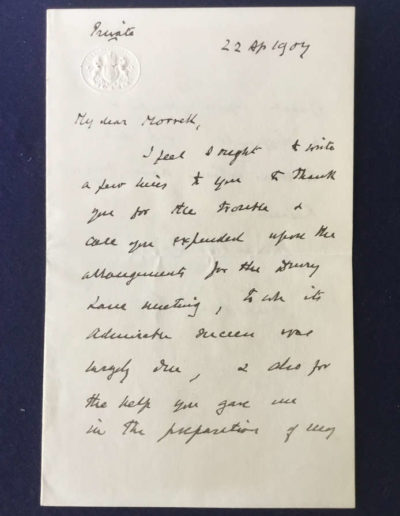 Private
22 Ap 1907
My dear Morrell,
I feel I ought to write
a few lines to you to thank
you for the trouble &
care you expended upon the
arrangements for the Drury
Lane meeting, to wh its
admirable success was
largely due, & also for
the help you gave me
in the preparation of my